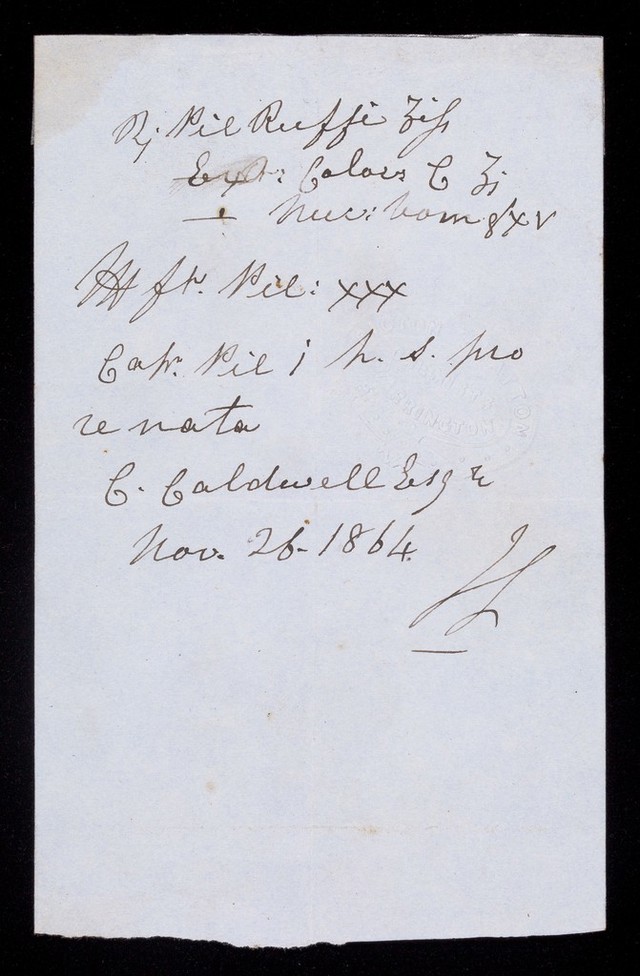 ℞ Pil Ruffi ʒifs
Ext: Coloc: C ʒj
— Nuc: Vom gr xv
ft. Pil: xxx
Capt. Pil j h. s. pro
re nata
C. Caldwell Esqr
Nov. 26 - 1864.